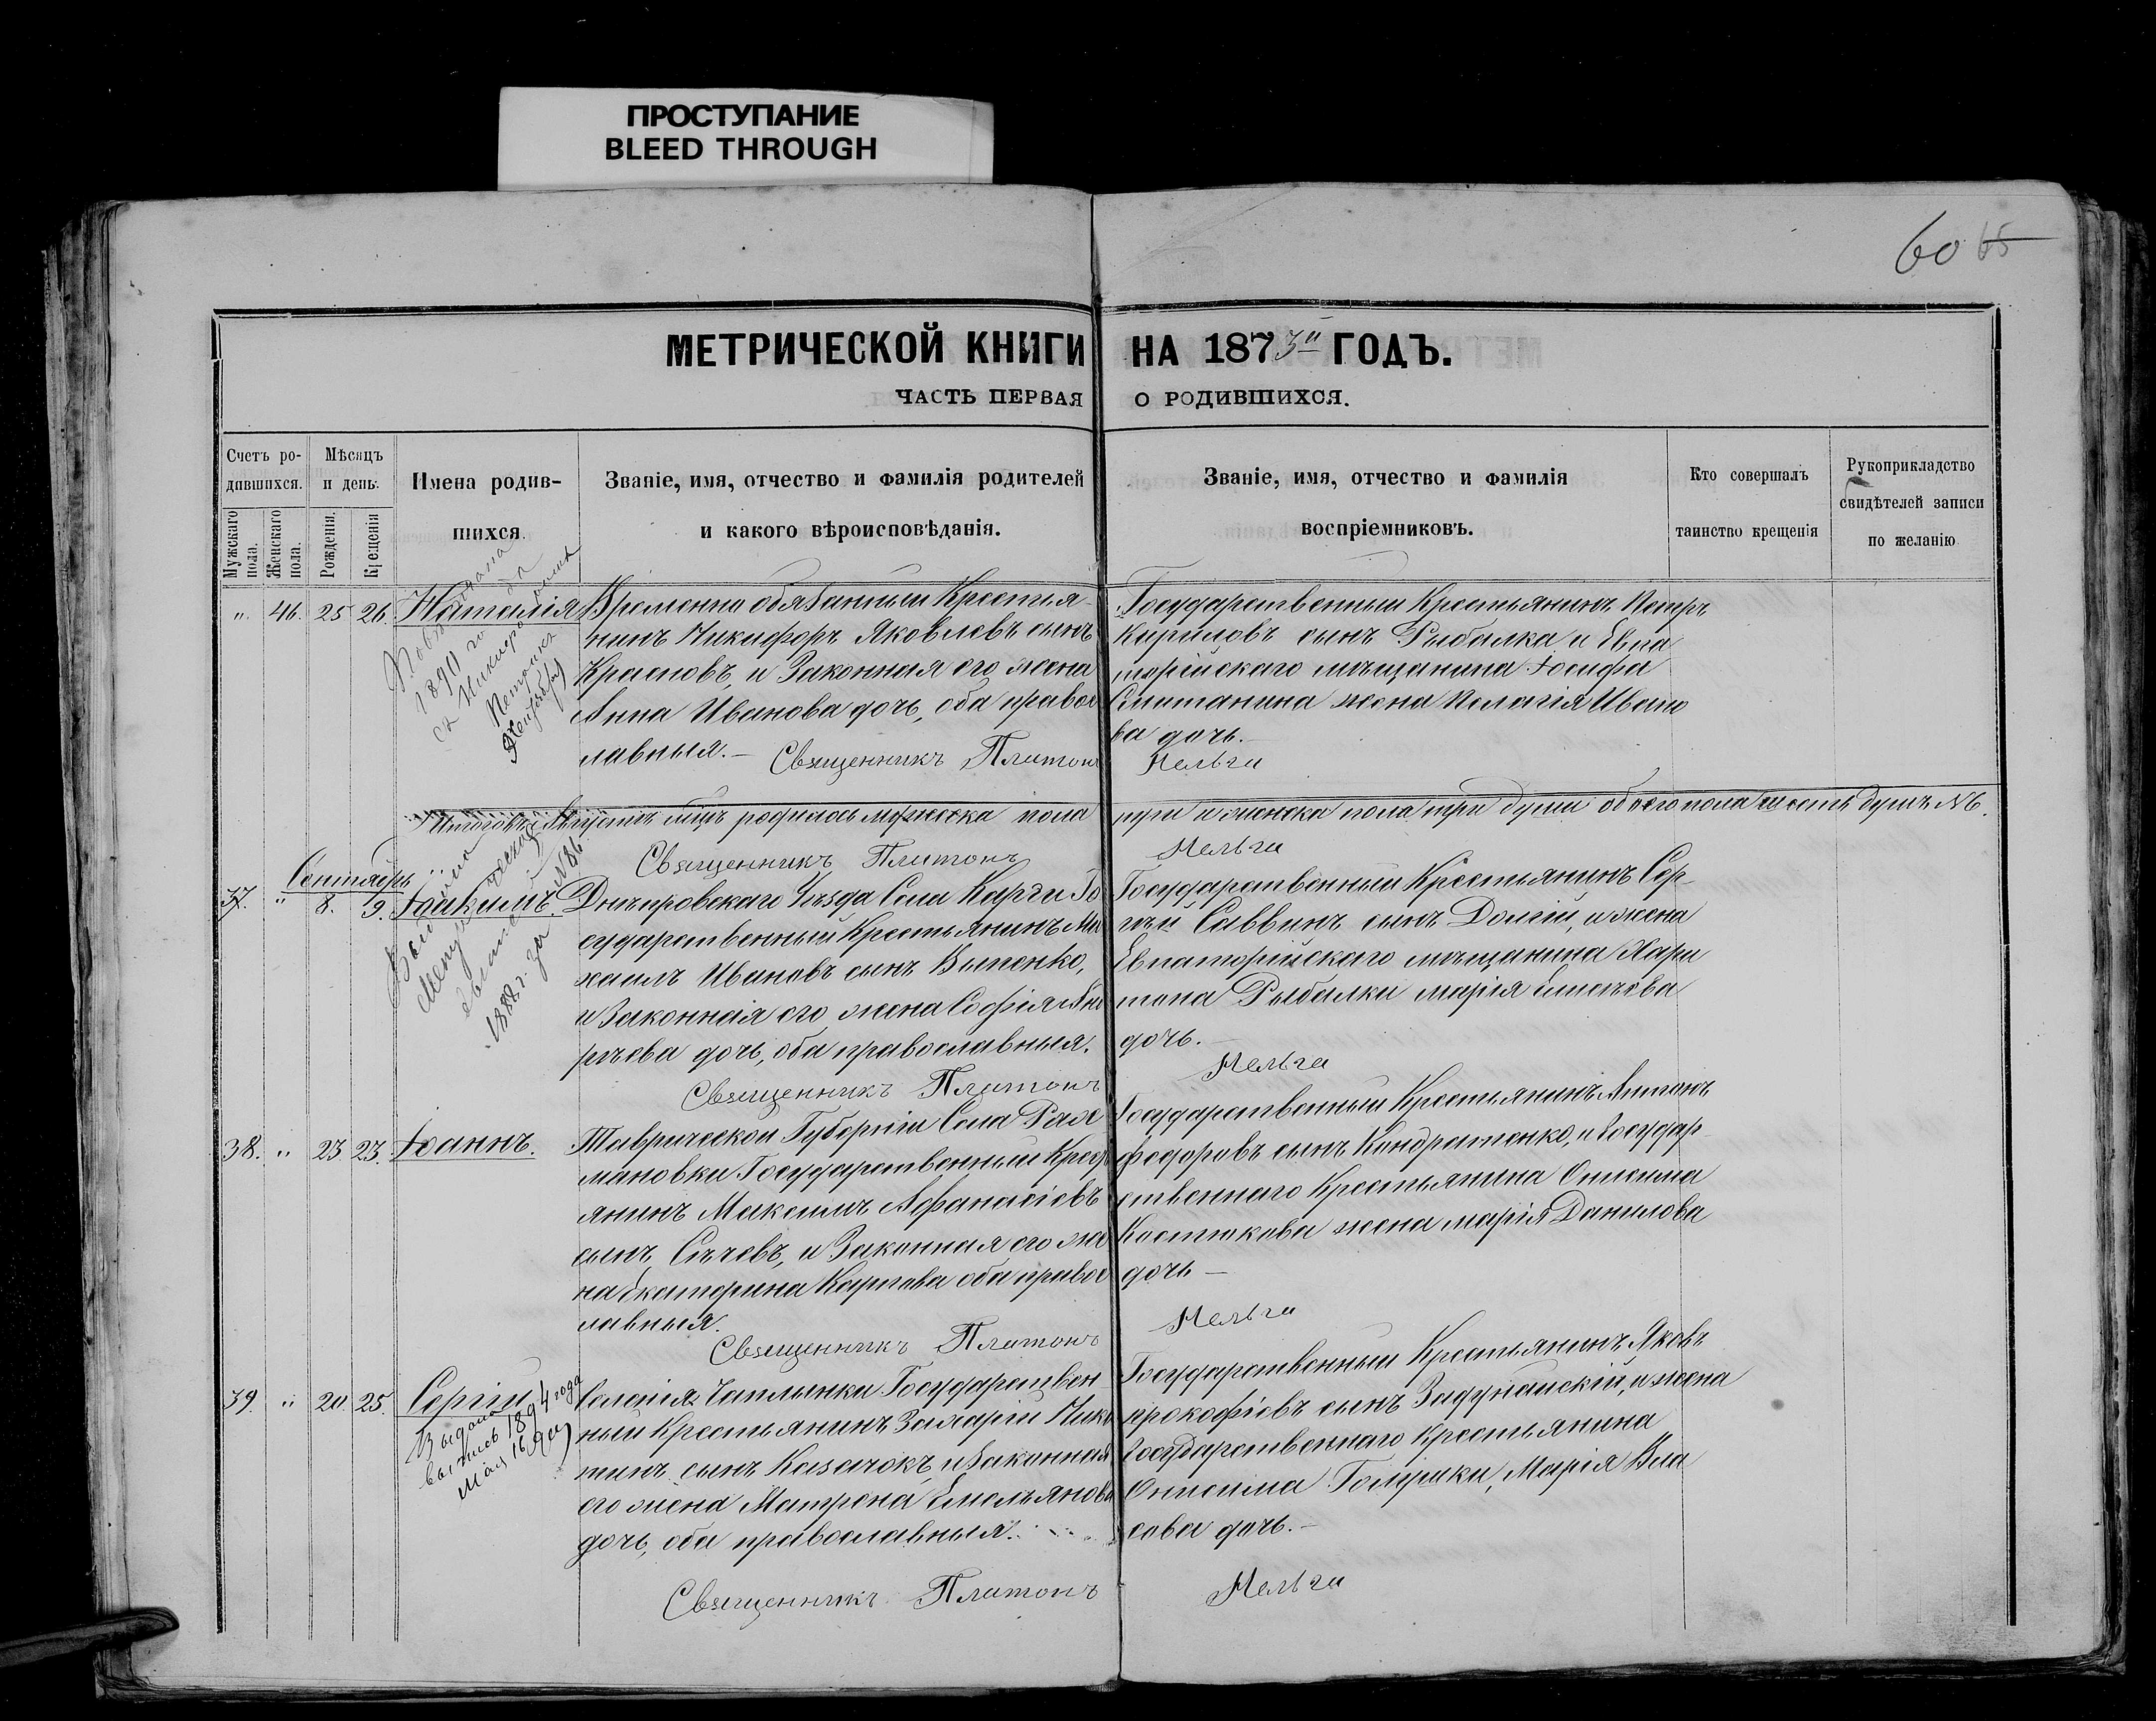 ПРОСТУПАНИЕ
BLEED THROUGH
60 65
МЕТРИЧЕСКОЙ КНИГИ НА 1873й ГОДЪ.
ЧАСТЬ ПЕРВАЯ О РОДИВШИХСЯ.
Счетъ ро-
дившихся.
Мужскаго пола.
Женскаго пола.
Мѣсяцъ
и день.
Рожденія.
Крещенія
Имена родив-
шихся.
Званіе, имя, отчество и фамилія родителей
и какого вѣроисповѣданія.
Званіе, имя, отчество и фамилія
воспріемниковъ.
Кто совершалъ
таинство крещенія
Рукоприкладство
свидѣтелей записи
по желанію
" 46. 25 26. Наталія
1890
Временно обязанный Крестья-
нинъ Никифоръ Яковлевъ сынъ
Красновъ, и Законная его жена
Анна Иванова дочь, оба правос
лавныя.- Священникъ Платонъ
Государственный Крестьянинъ Петръ
Кириловъ сынъ Рыбалка и Евпа
торійскаго мѣщанина Іосифа
жена Пелагія Ивано
ва дочь.-
Мельга
Итого въ Августѣ мцѣ родилось мужеска пола три и женска пола три души обоего пола шесть душъ №6.
Священникъ Платонъ Мельга
Сентябрь
37. " 8. 9. Іоакимъ.
1888 г. за №86.
Днѣпровскаго Уѣзда Села Карги Го
сударственный Крестьянинъ Ми
хаилъ Ивановъ сынъ
и Законная его жена Софія Анд
рѣева дочь, оба православныя.
Священникъ Платонъ
Государственный Крестьянинъ Сер-
гѣй Саввинъ сынъ Долгій, и жена
Евпаторійскаго мѣщанина Хари
тона Рыбалки марія
дочь.-
Мельга
38. " 23. 23. Іоаннъ.
Таврической Губерніи Села Рах
мановки Государственный Крест
янинъ Максимъ Афанасіевъ
сынъ Сычевъ, и Законная его же
на Екатерина Карпова оба правос
лавныя.
Священникъ Платонъ
Государственный Крестьянинъ Антонъ
Федоровъ сынъ Кондратенко, и Государ-
ственнаго Крестьянина Онисима
Костюкова жена марія Данилова
дочь -
Мельга
39. " 20. 25. Сергій
Выдана
выпись 1894 года
Мая 16 дня
Селенія Чаплынки Государствен-
ный Крестьянинъ Захарій Ники
тинъ сынъ Казачокъ, и Законная
его жена Матрона Емельянова
дочь, оба православныя.
Священникъ Платонъ
Государственный Крестьянинъ Яковъ
Прокофіевъ сынъ Задунайскій, и жена
Государственнаго Крестьянина
Онисима Голушки, Марія Вла
сова дочь.-
Мельга